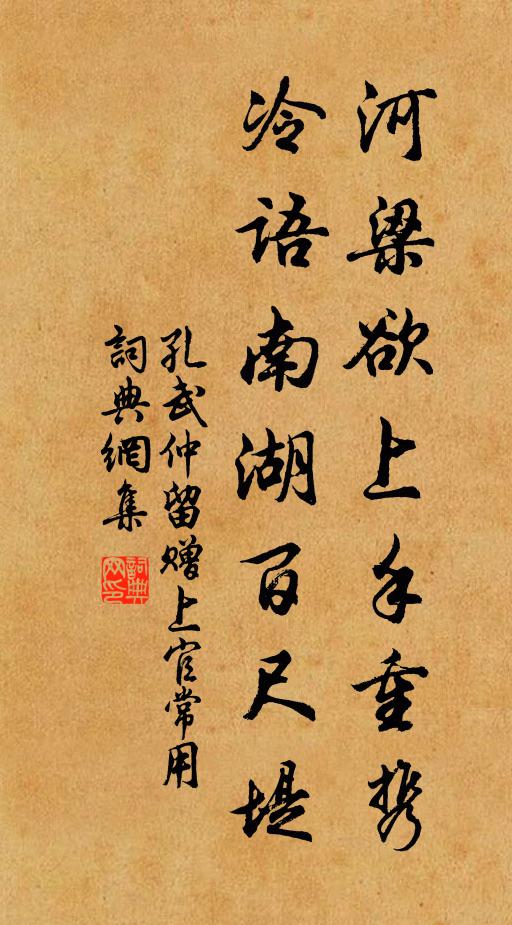 河梁欲上手重携
冷語南湖百尺堤
孔武仲留贈上官常用
詞典網集
詞典网印